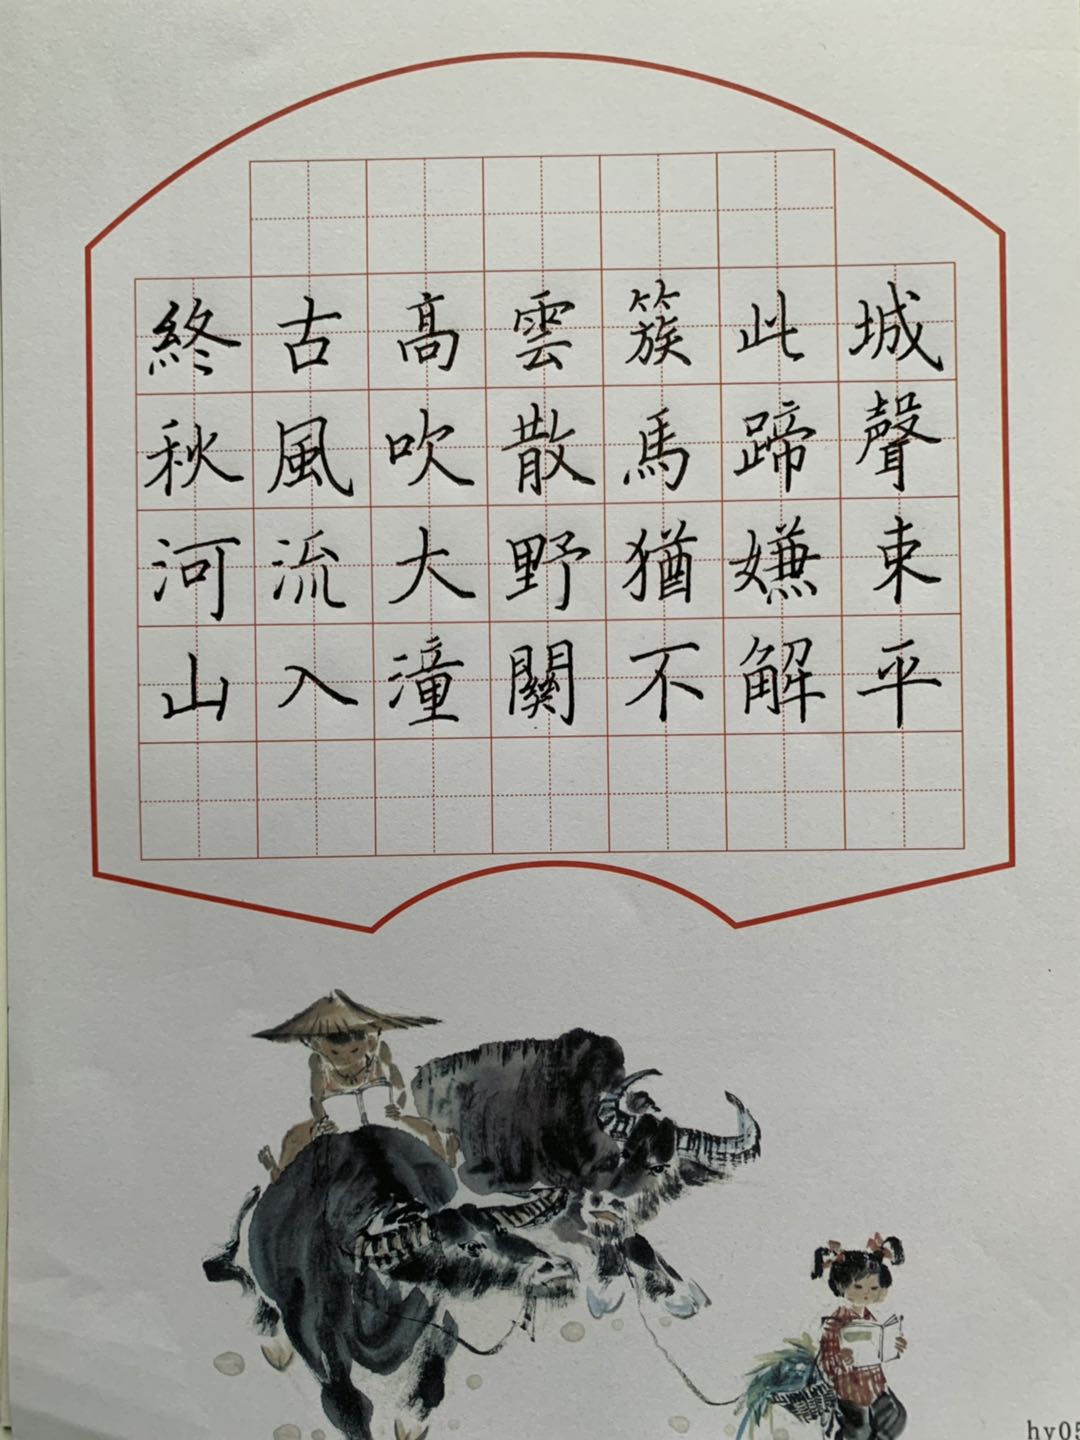 終古高雲簇此城
秋風吹散馬蹄聲
河流大野猶嫌束
山入潼關不解平
hy05